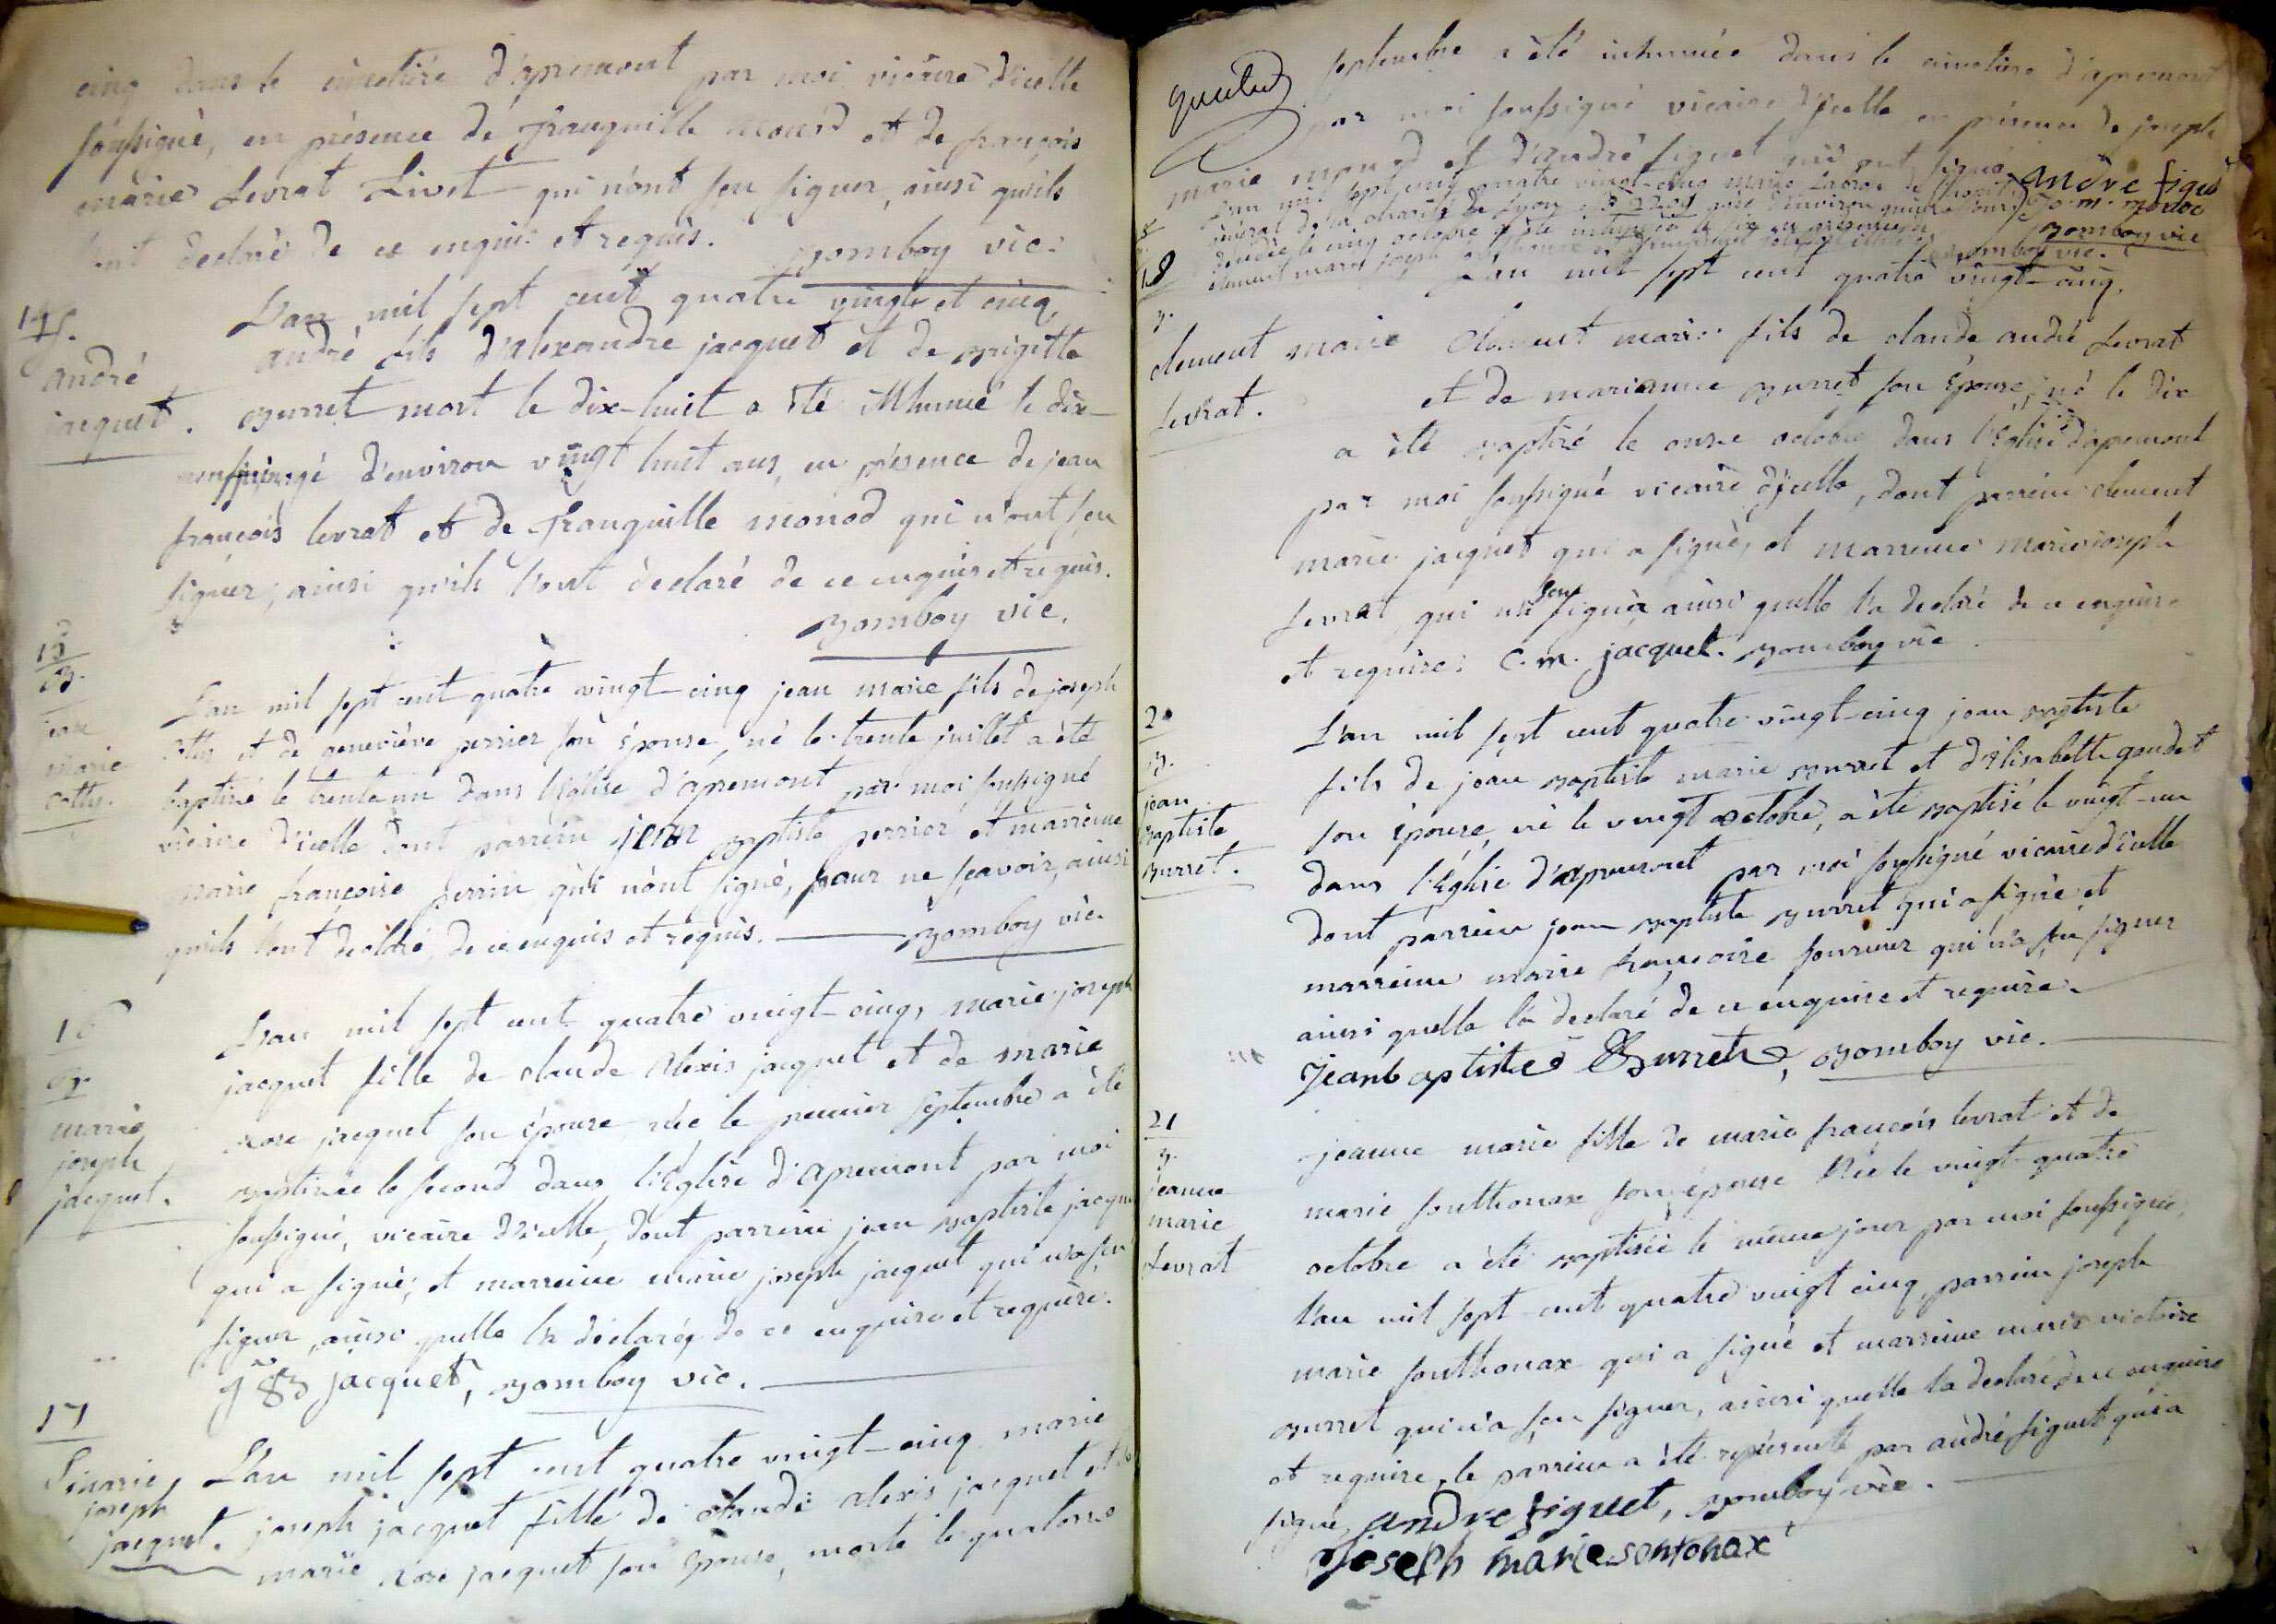 cinq dans le cimetiére d'apremont par moi vicaire d'icelle
soussigné, en présence de franquille monod et de françois
marie Levrat Livet qui n'ont sçu signer, ainsi qu'ils
l'ont declaré de ce enquis et requis. Bomboy vic.
14
S.
andré
jacquet.
L'an mil sept cent quatre vingt et cinq
andré fils d'alexandre jacquet et de Brigitte
Burret mort le dix-huit a été inhumé le dix-
neuf, agé d'environ vingt huit ans, en présence de jean
françois levrat et de franquille monod qui n'ont sçu
signer, ainsi qu'ils l'ont declaré de ce enquis et requis.
Bomboy vic.
15
B.
jean
marie
cotty.
L'an mil sept cent quatre vingt-cinq jean marie fils de joseph
cotty et de geneviève perrier son épouse, né le trente juillet a été
baptisé le trente un dans l'église d'apremont par moi soussigné
vicaire d'icelle dont parrein jean Baptiste perrier et marreine
marie françoise perrin qui n'ont signé, pour ne sçavoir, ainsi
qu'ils l'ont declaré, de ce enquis et requis. Bomboy vic.
16
B.
marie
joseph
jacquet.
L'an mil sept cent quatre vingt-cinq, marie joseph
jacquet fille de claude alexis jacquet et de marie
rose jacquet son épouse née le premier septembre a été
Baptisée le second dans l'Eglise d'apremont par moi
soussigné, vicaire d'icelle, dont parrein jean Baptiste jacquet
qui a signé, et marreine marie joseph jacquet qui n'a sçu
signer, ainsi quelle l'a déclaré, de ce enquise et requise.
j B jacquet, Bomboy vic.
17
S marie
joseph
jacquet.
L'an mil sept cent quatre vingt-cinq marie
joseph jacquet fille de claude alexis jacquet et de
marie Rose jacquet son épouse, morte le quatorse
septembre a été inhumée dans le cimetiere d'apremont
par moi soussigné vicaire d'icelle en présence de joseph
marie monod et d'andré siguet qui ont signé andre siguet
jo. m. monod
Bomboy vic
18
L'an mil sept cent quatre vingt-cinq marie
de la charité de Lyon agé d'environ
le cinq octobre a été inhumé
clement marie joseph
Bomboy vic.
B.
clement marie
Levrat.
L'an mil sept cent quatre vingt-cinq,
Clement marie fils de claude andré Levrat
et de marianne Burret son Epouse, né le dix
a été Baptisé le onse octobre dans l'Eglise d'apremont
par moi soussigné vicaire d'jcelle, dont parrein clement
marie jacquet qui a signé, et marreine marie joseph
Levrat qui n'a sçu signer, ainsi quelle l'a declaré de ce enquise
et requise. C. m. jacquet. Bomboy vic
20
B.
jean
Baptiste
Burret.
L'an mil sept cent quatre vingt-cinq jean Baptiste
fils de jean Baptiste marie Burret et d'Elisabeth gaudet
son épouse, né le vingt octobre, a été Baptisé le vingt-un
dans l'Eglise d'apremont par moi soussigné vicaire d'icelle
dont parrein jean Baptiste Burret qui a signé et
marreine marie françoise fournier qui n'a sçu signer
ainsi quelle l'a declaré de ce enquise et requise.
Jeanbaptiste Burret, Bomboy vic.
21
B.
jeanne
marie
Levrat
jeanne marie fille de marie françois levrat et de
marie sonthonax son épouse Née le vingt-quatre
octobre a été Baptisée le même jour par moi soussigné,
l'an mil sept cent quatre vingt cinq, parrein joseph
marie sonthonax qui a signé et marreine marie victoire
Burret qui n'a sçu signer, ainsi quelle l'a declaré de ce enquise
et requise, le parrein a été représenté par andré siguet qui a
signé, andre siguet, Bomboy vic.
Joseph marie sontonax